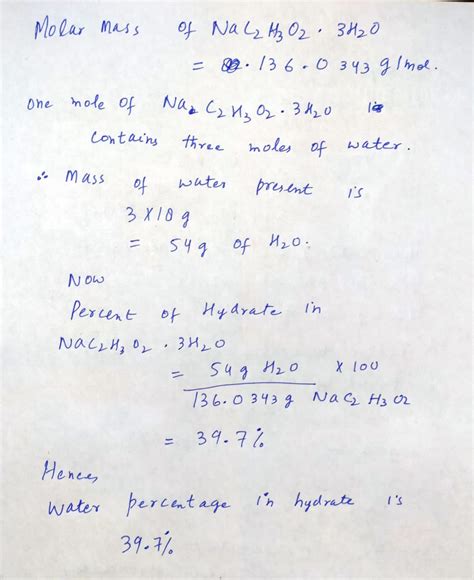 Molar Mass of NaC2H3O2 · 3H2O
= 136.0343 g/mol.
One mole of Na C2H3O2 · 3H2O is
contains three moles of water.
∴ Mass of water present is
3 X 18 g
= 54 g of H2O.
Now
Percent of Hydrate in
NaC2H3O2 · 3H2O
= 54 g H2O X 100
136.0343 g NaC2H3O2
= 39.7%
Hence,
water percentage in hydrate is
39.7%